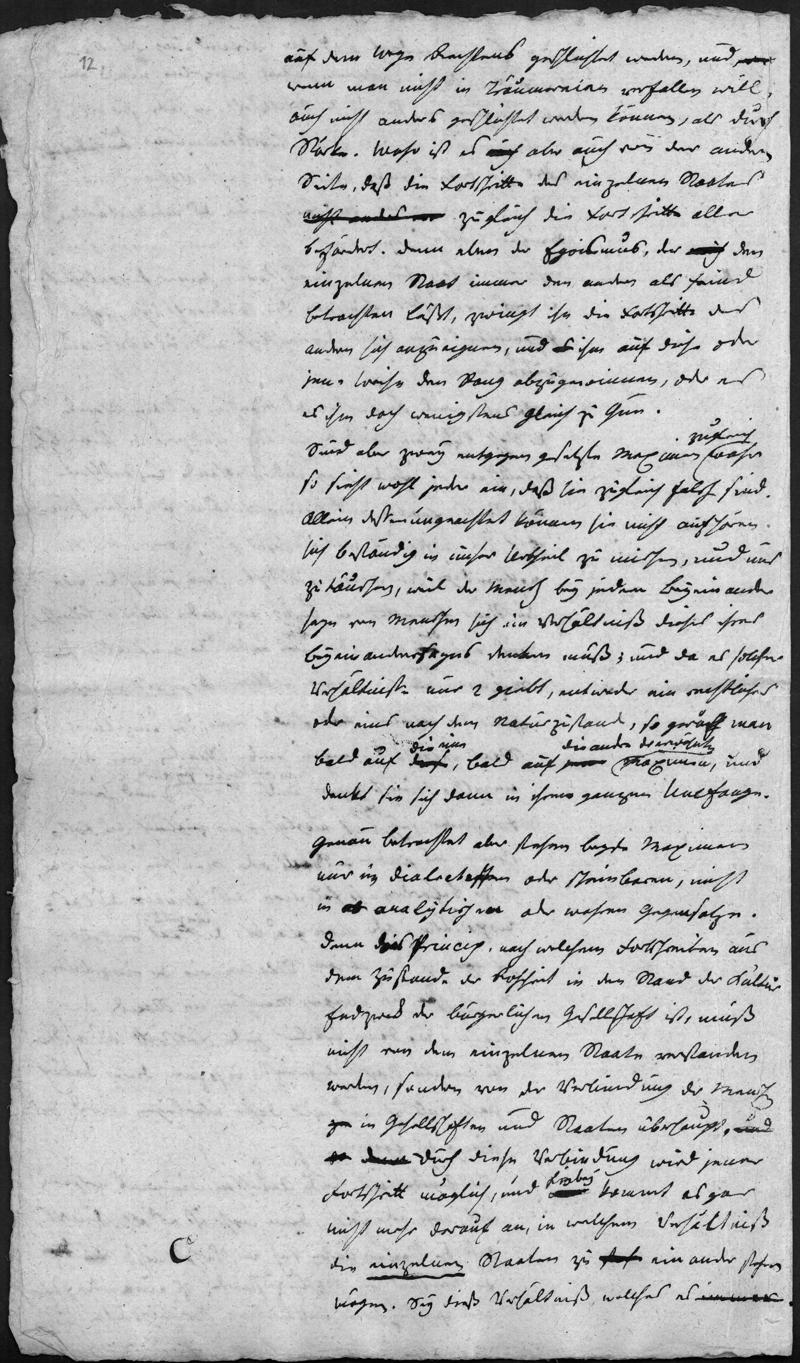 12.
auf dem Wege Rechtens geschlichtet werden, und
wenn man nicht in Träumereien verfallen will,
auch nicht anders geschlichtet werden können, als durch
Stärke. Wahr ist es auch aber auch von der andern
Seite, daß die Fortschritte des einzelnen Staates
nicht anders zugleich die Fortschritte aller
befördert. Denn eben der Egoismus, der den
einzelnen Staat immer den andern als Feind
betrachten läßt, zwingt ihn die Fortschritte des
andern sich anzueignen, und ihm auf diese oder
jene Weise den Rang abzugewinnen, oder es
es ihm doch wenigstens gleich zu thun.
Sind aber zwey entgegen gesetzte Maximen zugleich wahr
so sieht wohl jeder ein, daß sie zugleich falsch sind.
Allein dessenungeachtet können sie nicht aufhören
sich beständig in unser Urtheil zu mischen, und uns
zu täuschen, weil der Mensch bey jedem Beyeinander
seyn von Menschen sich ein Verhältniß dieses ihres
Beyeinanderseyns denken muß; und da es solcher
Verhältnisse nur 2 giebt, entweder ein rechtliches
oder eins nach dem Naturzustand, so geräth man
bald auf die eine, bald auf die andre Maxime, und
denkt sie sich dann in ihrem ganzen Umfange.
Genau betrachtet aber stehen beyde Maximen
nur in dialectischen oder scheinbaren, nicht
in analytischen oder wahren Gegensatze.
Denn das Princip, nach welchem Fortschreiten aus
dem Zustande der Rohheit in den Stand der Kultur
Endzweck der bürgerlichen Gesellschaft ist, muß
nicht von dem einzelnen Staate verstanden
werden, sondern von der Verbindung der Menschen
in Gesellschaften und Staaten überhaupt, und
denn Durch diese Verbindung wird jener
Fortschritt möglich, und hiebey kommt es gar
nicht mehr darauf an, in welchem Verhältniß
die einzelnen Staaten zu einander stehen
mögen. Sey dieß Verhältniß welches es immer
C